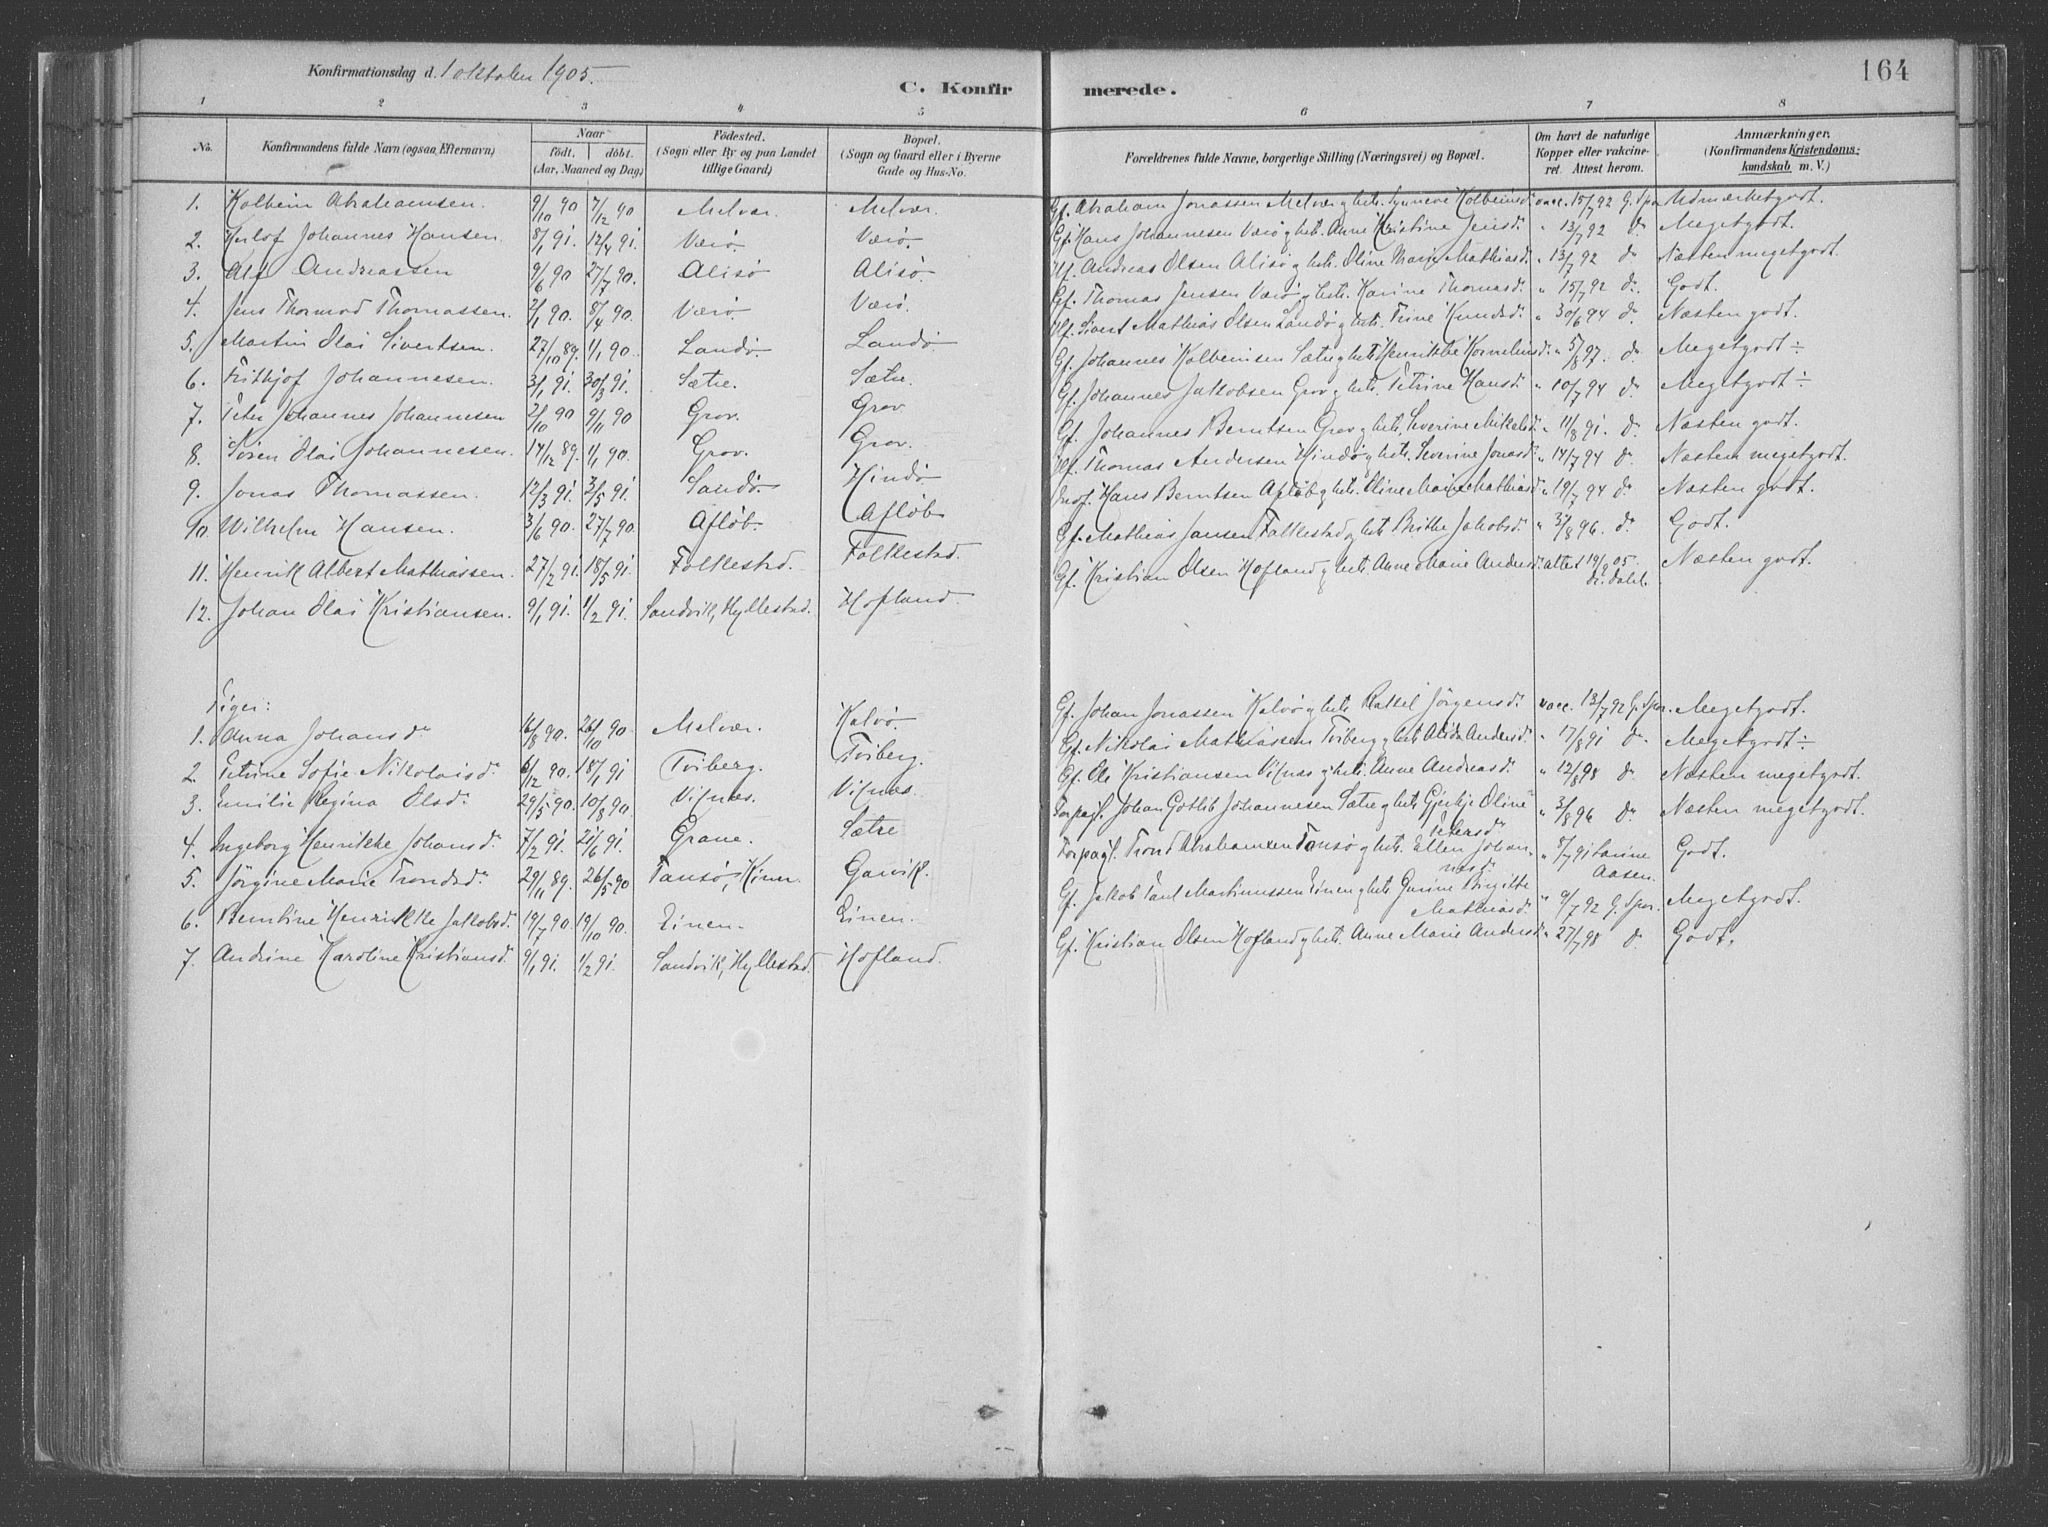 Konfirmationsdag d. 1 oktober 1905. C. Konfirmerede. 164
1 2 3 4 5 6 7 8
No. Konfirmandens fulde Navn (ogsaa Efternavn) Naar födt, döbt. (Aar, Maaned og Dag) Födested. (Sogn eller By og paa Landet tillige Gaard) Bopæl. (Sogn og Gaard eller i Byerne Gade og Hus-No. Forældrenes fulde Navne, borgerlige Stilling (Næringsvei) og Bopæl. Om havt de naturlige Kopper eller vakcineret. Attest herom. Anmærkninger. (Konfirmandens Kristendomskundskab m. V.)
1. Kolbein Abrahamsen. 9/10 90 7/12 90 Melvær. Melvær. Gf. Abraham Jonassen Melvær og hstr. Synneve Kolbeinsd. vacc. 15/7 92 G. Spor. Udmærketgodt.
2. Herlof Johannes Hansen. 8/1 91. 12/4 91. Værö. Værö. Gf. Hans Johannesen Værö og hstr. Anne Kristine Jensd. " 13/7 92 do Megetgodt.
3. Alf Andreassen 9/6 90 27/7 90. Alisö Alisö. Hf. Andreas Olsen Alisö og hstr. Oline Marie Mathiasd. " 13/7 92 do Næsten megetgodt.
4. Jens Thormod Thomassen. 2/1 90. 8/4 90. Værö. Værö. Gf. Thomas Jensen Værö og hstr. Karine Thomasd. " 15/7 92 do Godt.
5. Martin Olai Sivertsen. 27/10 89. 1/1 90. Landö. Landö. Hf. Sivert Mathias Olsen Landö og hstr. Trine Knudsd. " 30/6 94 do. Næsten godt.
6. Frithjof Johannesen. 3/1 91. 30/3 91. Sætre. Sætre. Gf. Johannes Kolbeinsen Sætre og hstr. Henrikke Korneliusd. " 5/8 97. do Megetgodt ÷
7. Peter Johannes Johannesen 2/10 90 9/11 90 Grov. Grov. Gf. Johannes Jakobsen Grov og hstr. Petrine Hansd. " 10/7 94 do Megetgodt ÷
8. Sören Olai Johannesen. 14/12 89. 1/1 90. Grov. Grov. Gf. Johannes Berntsen Grov og hstr. Severine Mikelsd. " 11/8 91. do Næsten godt.
9. Jonas Thomassen. 12/3 91. 3/5 91. Sandö. Hindö Hf. Thomas Andersen Hindö og hstr. Severine Jonasd. " 14/7 94 do Næsten megetgodt.
10. Wilhelm Hansen. 3/6 90. 27/7 90. Aflöb. Aflöb Hans Berntsen Aflöb og hstr. Oline Marie Mathiasd. " 19/7 94 do Næsten godt.
11. Henrik Albert Mathiassen. 27/2 91. 18/5 91. Folkestad. Folkestad. Gf. Mathias Jansen Folkestad og hstr. Brithe Jakobsd. " 3/8 96. do Godt.
12. Johan Olai Kristiansen. 9/1 91. 1/2 91. Sandvik, Hyllestad. Hofland. Gf. Kristian Olsen Hofland og hstr. Anne Marie Andersd. attest 14/9 05. Næsten godt.
Piger:
1. Anna Johansd. 16/8 90. 26/10 90. Melvær. Kalvö. Gf. Johan Jonassen Kalvö og hstr. Rakkel Jörgensd. vacc. 13/7 92 G. Spor. Megetgodt.
2. Petrine Sofie Nikolaisd. 6/12 90. 18/1 91 Tviberg. Tviberg. Gf. Nikolai Mathiassen Tviberg og hstr. Alida Andersd. " 17/8 91 do Megetgodt ÷
3. Emilie Regina Olsd. 29/5 90. 10/8 90. Vifnæs. Vifnæs. Gf. Ole Kristiansen Vifnæs og hstr. Anne Andreasd. " 12/8 98 do Næsten megetgodt.
4. Ingeborg Henrikke Johansd. 7/2 91. 21/6 91. Grane. Sætre Forpagt. Johan Gotlib Johannesen Sætre og hstr. Gjertje Oline Petersd. " 3/8 96 do Næsten megetgodt.
5. Jörgine Marie Trondsd. 29/11 89. 26/5 90 Tansö, Kinn. Garvik. Forpagt. Trond Abrahamsen Tansö og hstr. Ellen Johannesd. " 8/7 91 Larine Aasen. Godt.
6. Berntine Henrikke Jakobsd. 19/7 90. 19/10 90. Einen. Einen. Gf. Jakob Paul Martinussen Einen og hstr. Gurine Birgitte Mathiasd. " 9/7 92 G. Spor. Megetgodt.
7. Andrine Karoline Kristiansd. 9/1 91. 1/2 91. Sandvik, Hyllestad. Hofland. Gf. Kristian Olsen Hofland og hstr. Anne Marie Andersd. " 27/7 98 do Godt.